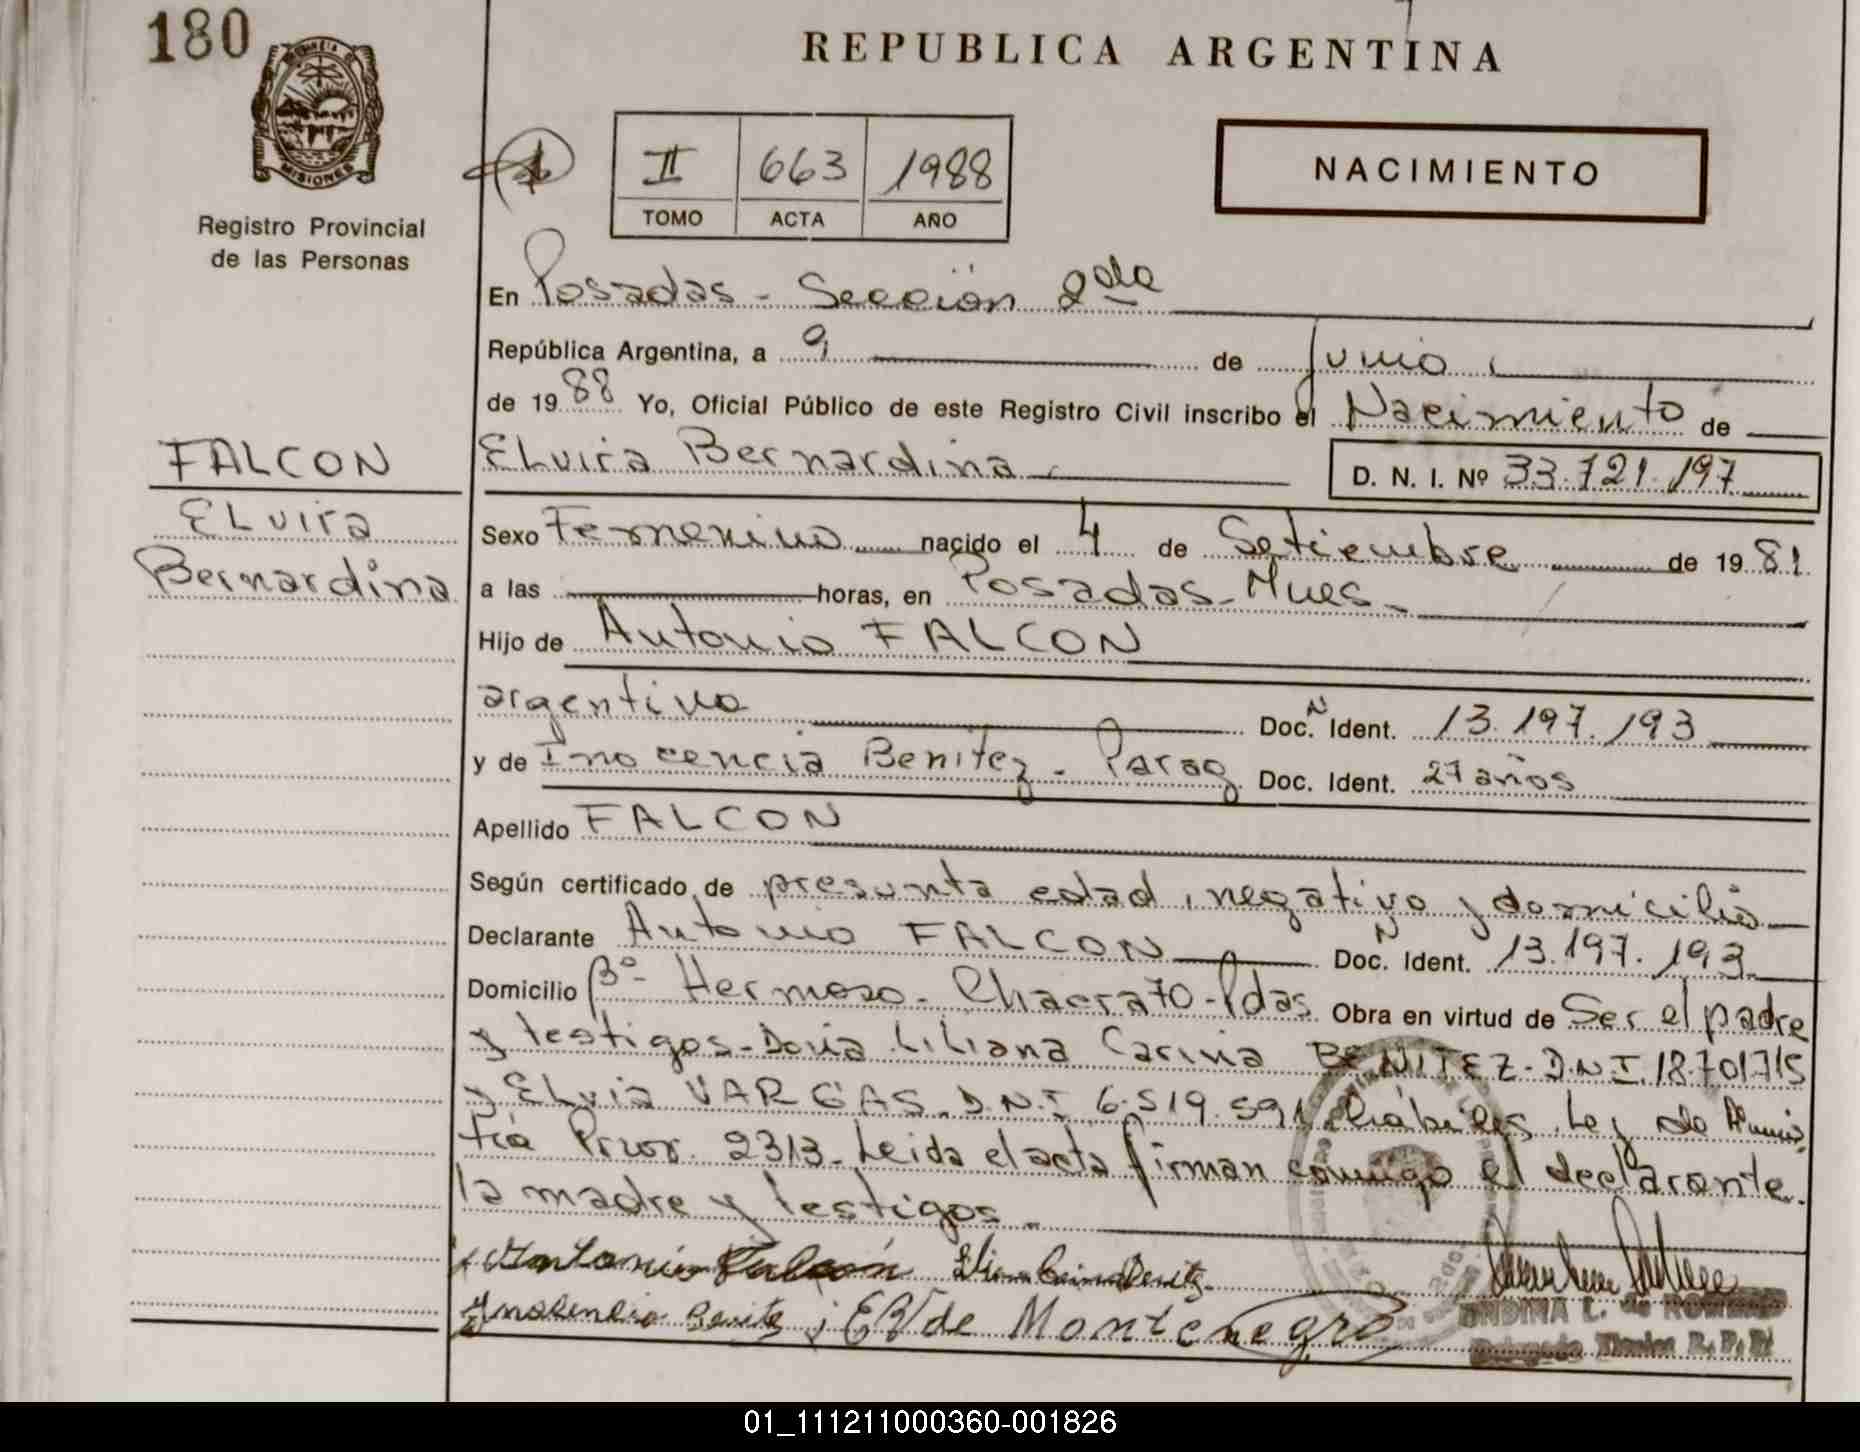 180
REPUBLICA ARGENTINA
MISIONES
Registro Provincial
de las Personas
II 663 1988
TOMO ACTA AÑO
NACIMIENTO
En Posadas - Sección 2da
República Argentina, a 9 de Junio
de 1988 Yo, Oficial Público de este Registro Civil inscribo el Nacimiento de
FALCON
Elvira Bernardina D. N. I. Nº 33.721.197
Elvira
Bernardina
Sexo Femenino nacido el 4 de Setiembre de 1981
a las horas, en Posadas - Mnes -
Hijo de Antonio FALCON
argentino Doc. N Ident. 13.197.193
y de Inocencia Benitez - Parag Doc. Ident. 27 años
Apellido FALCON
Según certificado de presunta edad, negativo y domicilio
Declarante Antonio FALCON Doc. N Ident. 13.197.193
Domicilio Bº Hermoso - Chacra 70 - Pdas Obra en virtud de Ser el padre
y testigos - Doña Liliana Carina BENITEZ - D.N.I. 18.701715
y Elvia VARGAS - D.N.I 6.519.591 hábiles. Ley de Amnis
tía Prov. 2313 - Leida el acta firman conmigo el declarante.
la madre y testigos -
Antonio Falcón Benitez
Inosencia Benites EV de Montenegro
ONDINA L. de
R. P. P.
01_111211000360-001826